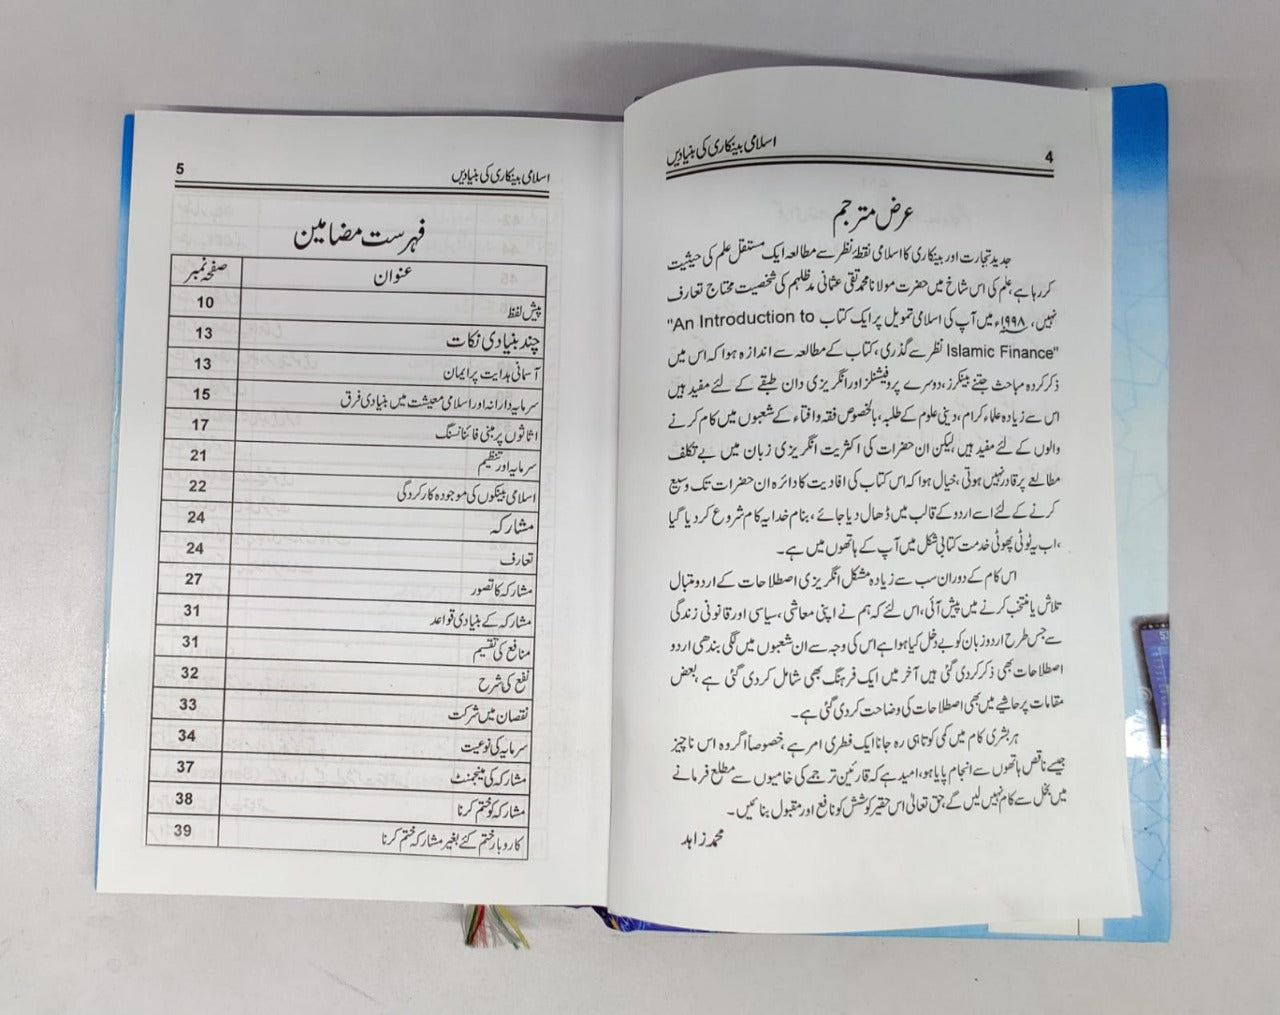 4 اسلامی بینکاری کی بنیادیں
عرض مترجم
جدید تجارت اور بینکاری کا اسلامی نقطۂ نظر سے مطالعہ ایک مستقل علم کی حیثیت
کر رہا ہے، علم کی اس شاخ میں حضرت مولانا محمد تقی عثمانی مدظلہم کی شخصیت محتاج تعارف
نہیں، ۱۹۹۸ء میں آپ کی اسلامی تمویل پر ایک کتاب "An Introduction to
Islamic Finance" نظر سے گذری، کتاب کے مطالعہ سے اندازہ ہوا کہ اس میں
ذکر کردہ مباحث جتنے بینکرز، دوسرے پروفیشنلز اور انگریزی دان طبقے کے لئے مفید ہیں
اس سے زیادہ علماء کرام، دینی علوم کے طلبہ، بالخصوص فقہ و افتاء کے شعبوں میں کام کرنے
والوں کے لئے مفید ہیں، لیکن ان حضرات کی اکثریت انگریزی زبان میں بے تکلف
مطالعے پر قادر نہیں ہوتی، خیال ہوا کہ اس کتاب کی افادیت کا دائرہ ان حضرات تک وسیع
کرنے کے لئے اسے اردو کے قالب میں ڈھال دیا جائے، بنام خدا یہ کام شروع کر دیا گیا
، اب یہ ٹوٹی پھوٹی خدمت کتابی شکل میں آپ کے ہاتھوں میں ہے۔
اس کام کے دوران سب سے زیادہ مشکل انگریزی اصطلاحات کے اردو متبادل
تلاش یا منتخب کرنے میں پیش آئی، اس لئے کہ ہم نے اپنی معاشی، سیاسی اور قانونی زندگی
سے جس طرح اردو زبان کو بے دخل کیا ہوا ہے اس کی وجہ سے ان شعبوں میں لگی بندھی اردو
اصطلاحات بھی ذکر کر دی گئی ہیں آخر میں ایک فرہنگ بھی شامل کر دی گئی ہے، بعض
مقامات پر حاشیے میں بھی اصطلاحات کی وضاحت کر دی گئی ہے۔
ہر بشری کام میں کمی کوتاہی رہ جانا ایک فطری امر ہے، خصوصاً اگر وہ اس ناچیز
جیسے ناقص ہاتھوں سے انجام پایا ہو، امید ہے کہ قارئین ترجمے کی خامیوں سے مطلع فرمانے
میں بخل سے کام نہیں لیں گے، حق تعالیٰ اس حقیر کوشش کو نافع اور مقبول بنائیں۔
محمد زاہد
اسلامی بینکاری کی بنیادیں 5
فہرست مضامین
عنوان صفحہ نمبر
پیش لفظ 10
چند بنیادی نکات 13
آسمانی ہدایت پر ایمان 13
سرمایہ دارانہ اور اسلامی معیشت میں بنیادی فرق 15
اثاثوں پر مبنی فائنانسنگ 17
سرمایہ اور تنظیم 21
اسلامی بینکوں کی موجودہ کارکردگی 22
مشارکہ 24
تعارف 24
مشارکہ کا تصور 27
مشارکہ کے بنیادی قواعد 31
منافع کی تقسیم 31
نفع کی شرح 32
نقصان میں شرکت 33
سرمایہ کی نوعیت 34
مشارکہ کی مینجمنٹ 37
مشارکہ کو ختم کرنا 38
کاروبار ختم کئے بغیر مشارکہ ختم کرنا 39